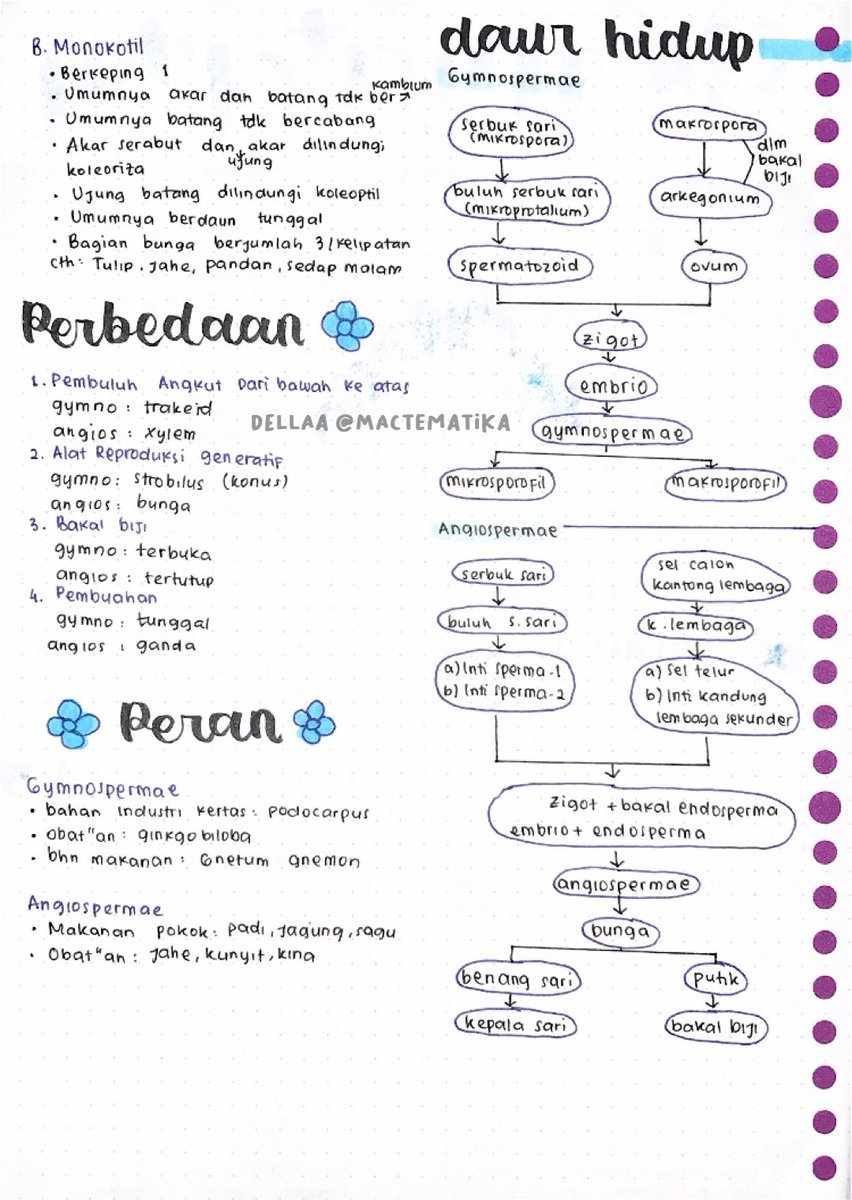 B. Monokotil
• Berkeping 1
• Umumnya akar dan batang tdk ber↗ kambium
• Umumnya batang tdk bercabang
• Akar serabut dan ujung akar dilindungi
koleoriza
• Ujung batang dilindungi koleoptil
• Umumnya berdaun tunggal
• Bagian bunga berjumlah 3/kelipatan
cth: Tulip, jahe, pandan, sedap malam
Perbedaan
1. Pembuluh Angkut Dari bawah ke atas
gymno : trakeid
angios : xylem
2. Alat Reproduksi generatif
gymno: strobilus (konus)
angios : bunga
3. Bakal biji
gymno : terbuka
angios : tertutup
4. Pembuahan
gymno : tunggal
angios : ganda
DELLAA @MACTEMATiKA
Peran
Gymnospermae
• bahan industri kertas: podocarpus
• obat"an: ginkgo biloba
• bhn makanan: Gnetum gnemon
Angiospermae
• Makanan pokok: padi, jagung, sagu
• Obat"an: jahe, kunyit, kina
daur hidup
Gymnospermae
serbuk sari
(mikrospora)
makrospora
dlm
bakal
biji
buluh serbuk sari
(mikroprotalium)
arkegonium
spermatozoid
ovum
zigot
embrio
gymnospermae
mikrosporofil
makrosporofil
Angiospermae
serbuk sari
sel calon
kantong lembaga
buluh s.sari
k.lembaga
a) Inti sperma-1
b) Inti sperma-2
a) Sel telur
b) Inti kandung
lembaga sekunder
zigot + bakal endosperma
embrio + endosperma
angiospermae
bunga
benang sari
putik
kepala sari
bakal biji